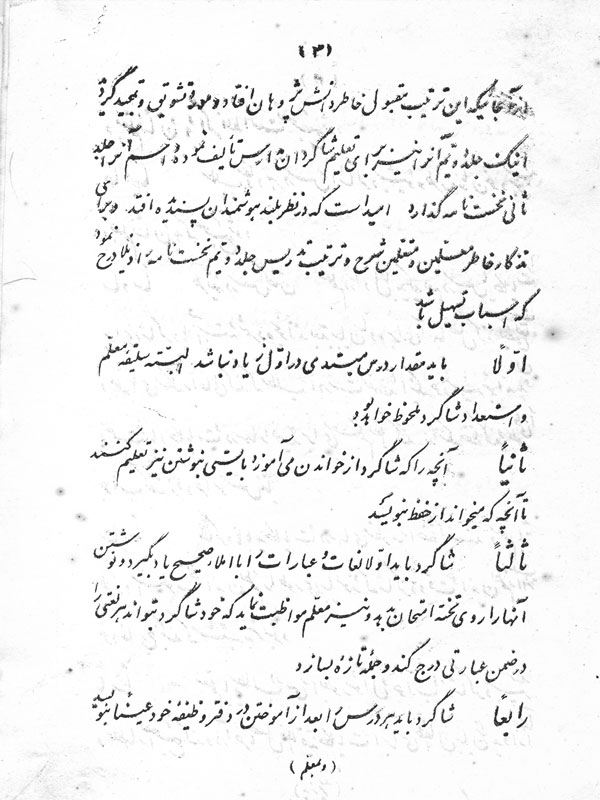 (۳)
از آنجائیکه این ترتیب مقبول خاطر دانش پژوهان افتاده و مورد تشویق و تمجید گردید
اینک جلد دویم آنرا نیز برای تعلیم شاگردان مدارس تألیف نموده و اسم آنرا جلد
ثانی نخست نامه گذارد امید است که در نظر بلند هوشمندان پسندیده افتد و برای
تذکار خاطر معلمین و متعلمین شرح و ترتیب تدریس جلد دویم نخست نامه را ذیلا درج نمود
که اسباب تسهیل باشد
اولاً باید مقدار درس مبتدی در اول زیاد نباشد البته سلیقه معلم
و استعداد شاگرد ملحوظ خواهد بود
ثانیاً آنچه را که شاگرد از خواندن می آموزد بایستی بنوشتن نیز تعلیم کنند
تا آنچه که میخواند از حفظ بنویسد
ثالثاً شاگرد باید اولا لغات و عبارات را با املاء صحیح یاد بگیرد و نوشتن
آنها را روی تخته امتحان بدهد و نیز معلم مواظبت نماید که خود شاگرد بتواند هر لغتی را
در ضمن عبارتی درج کند و جمله تازه بسازد
رابعاً شاگرد باید هر درس را بعد از آموختن در دفتر وظیفه خود عیناً بنویسد
(و معلم)